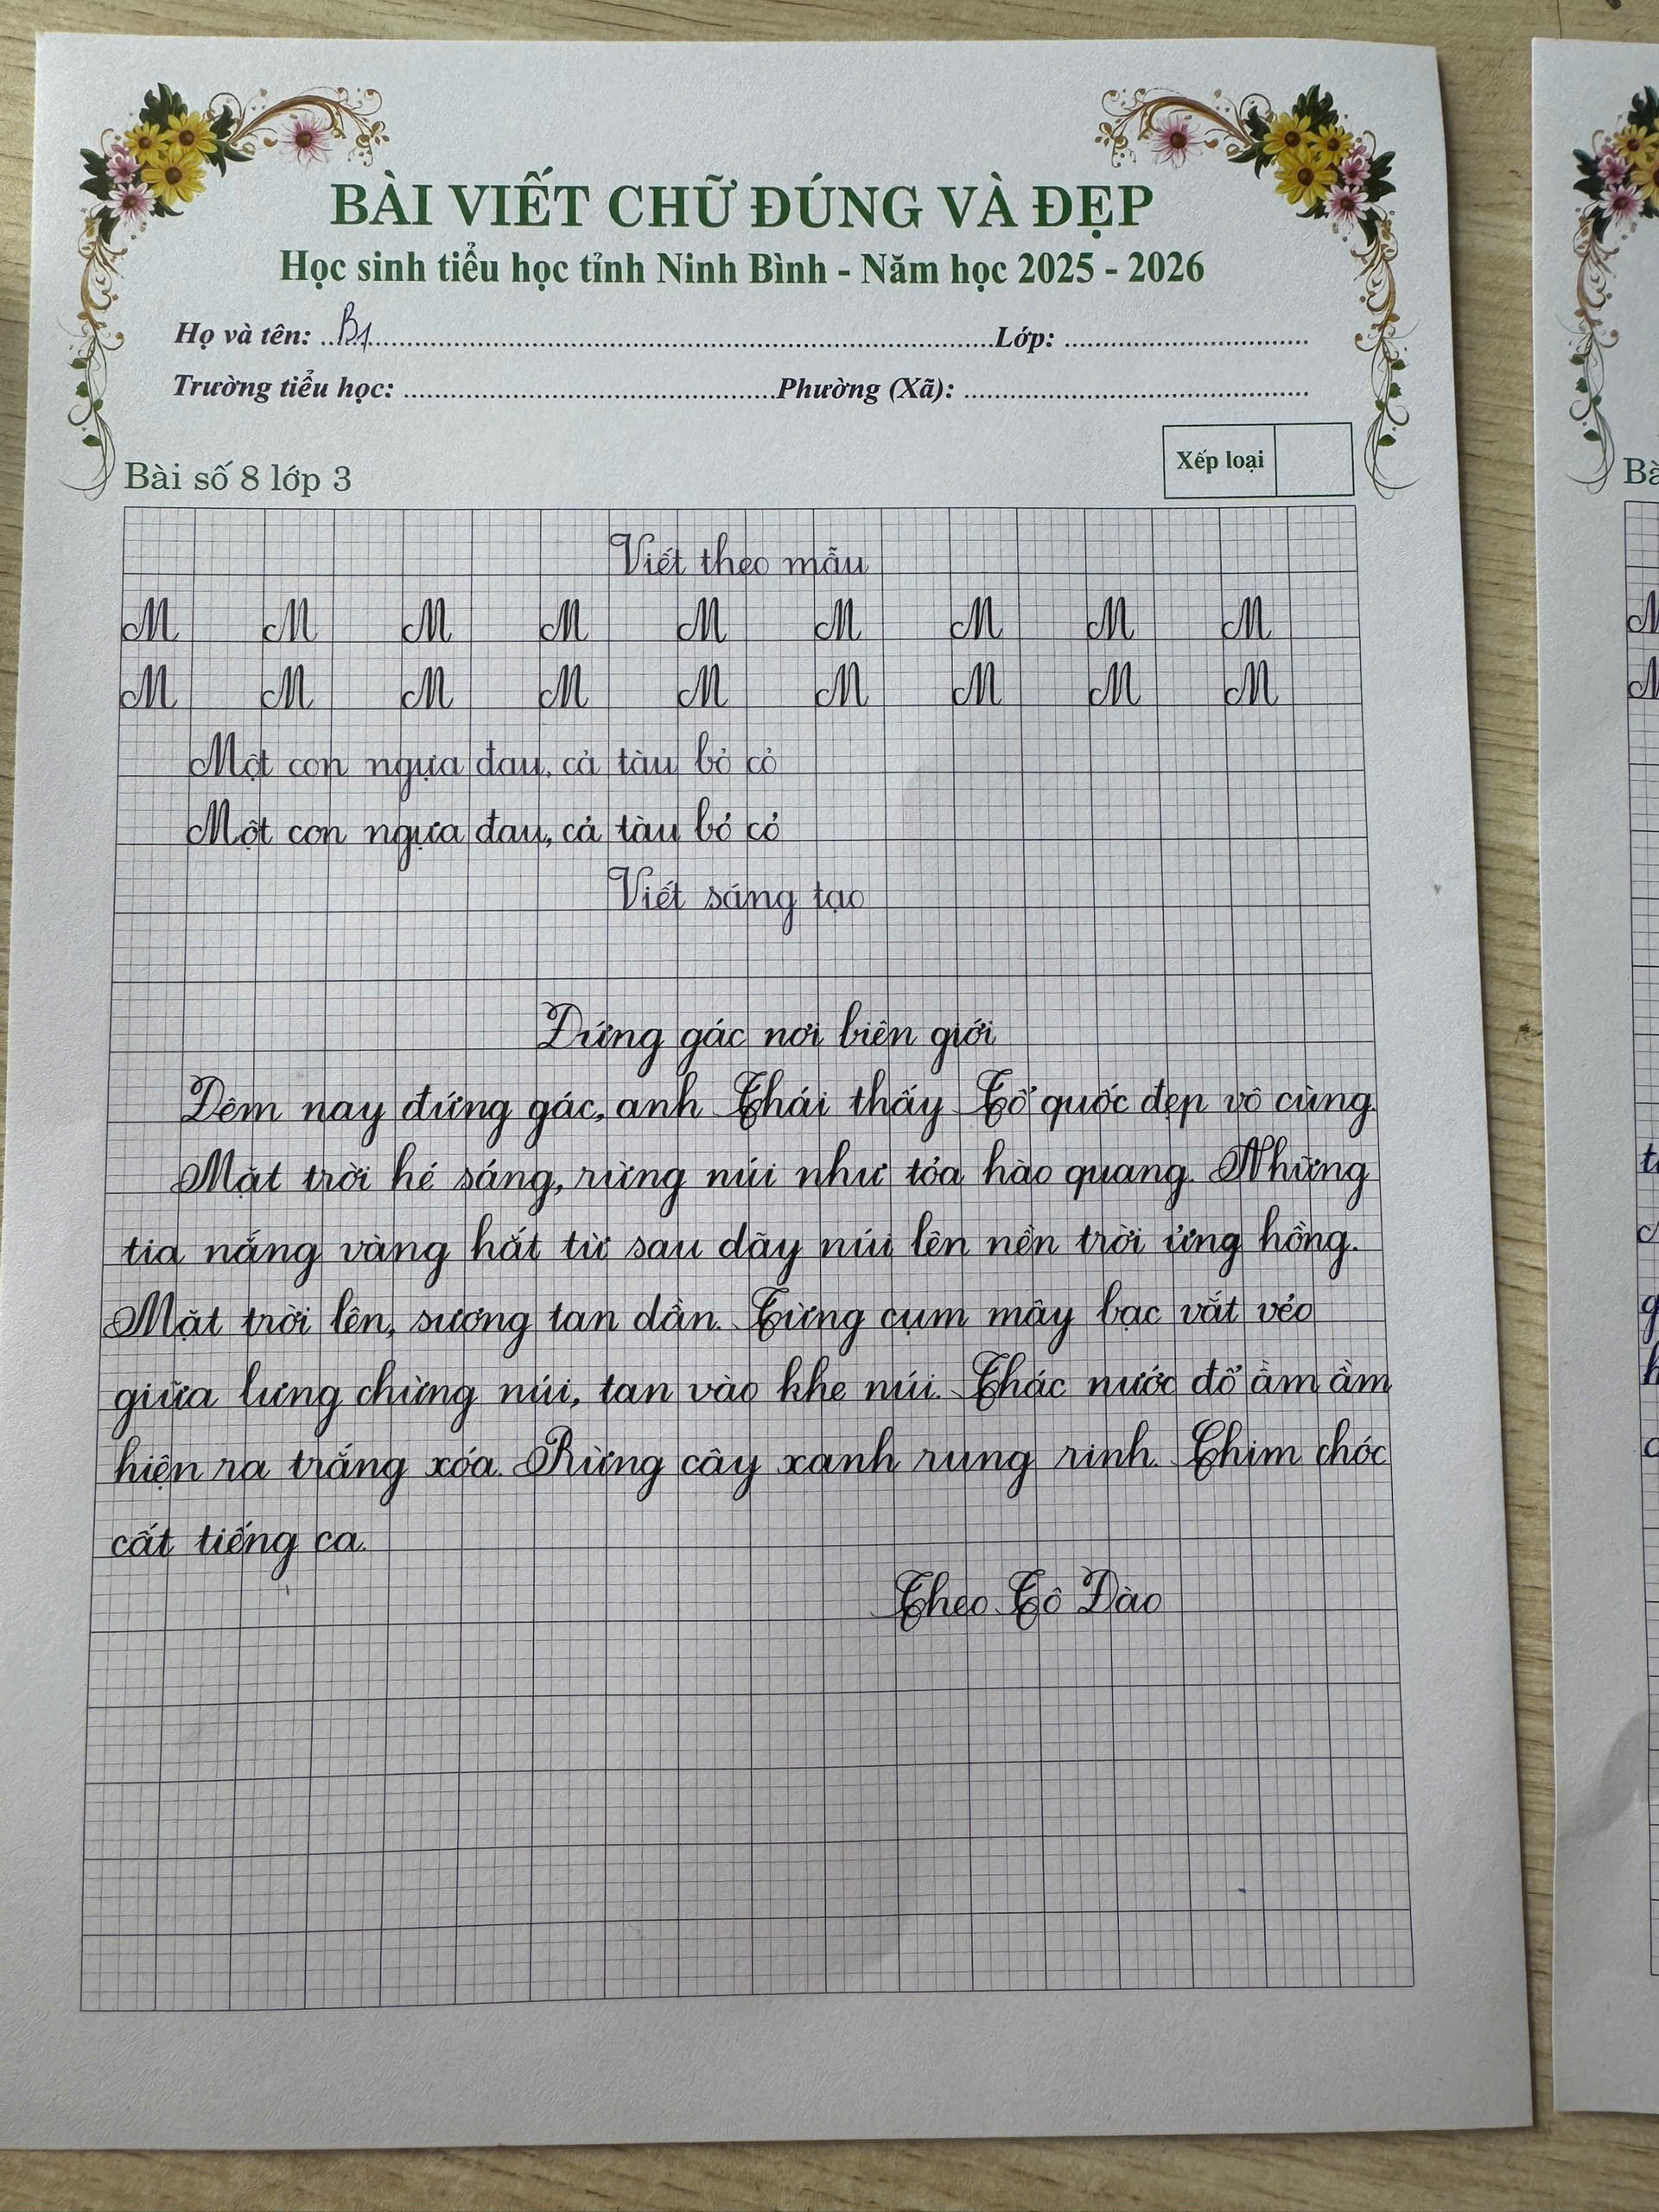 BÀI VIẾT CHỮ ĐÚNG VÀ ĐẸP
Học sinh tiểu học tỉnh Ninh Bình - Năm học 2025 - 2026
Họ và tên: B1 Lớp:
Trường tiểu học: Phường (Xã):
Xếp loại
Bài số 8 lớp 3
Viết theo mẫu
M M M M M M M M M
M M M M M M M M M
Một con ngựa đau, cả tàu bỏ cỏ
Một con ngựa đau, cả tàu bỏ cỏ
Viết sáng tạo
Đứng gác nơi biên giới
Đêm nay đứng gác, anh Thái thấy Tổ quốc đẹp vô cùng.
Mặt trời hé sáng, rừng núi như tỏa hào quang. Những
tia nắng vàng hắt từ sau dãy núi lên nền trời ửng hồng.
Mặt trời lên, sương tan dần. Từng cụm mây bạc vắt vẻo
giữa lưng chừng núi, tan vào khe núi. Thác nước đổ ầm ầm
hiện ra trắng xóa. Rừng cây xanh rung rinh. Chim chóc
cất tiếng ca.
Theo Tô Đào